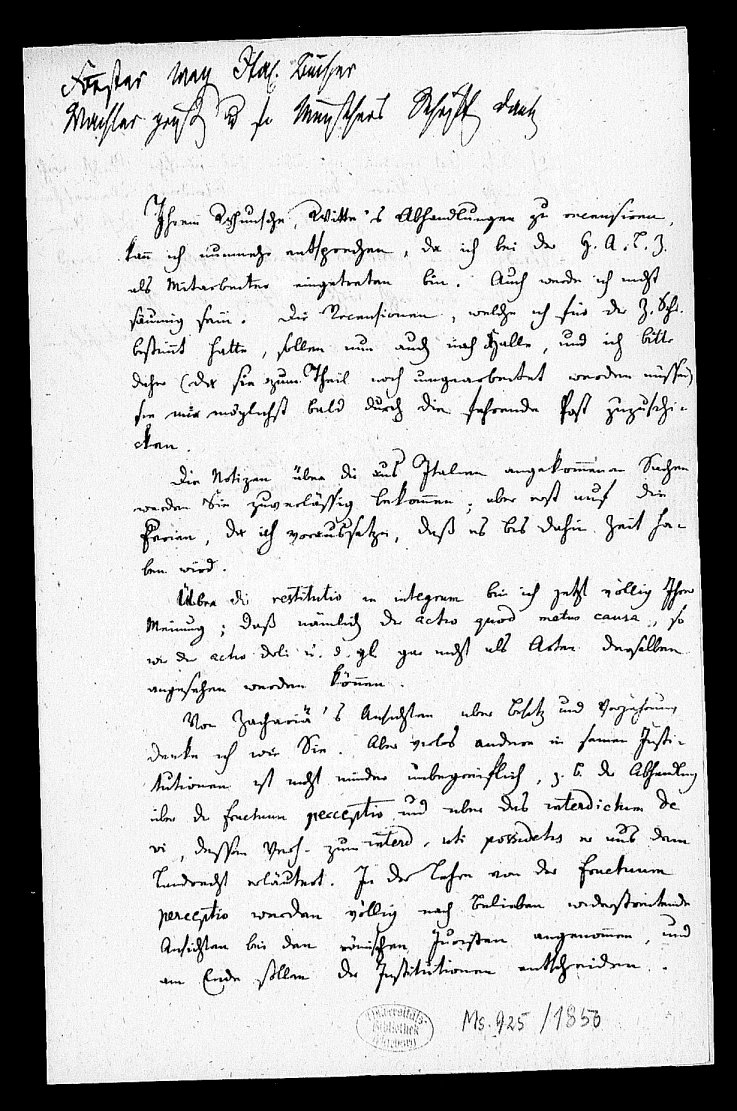 Foerster weg. Ital. Bücher
Wachler grüßt u. für Schrift dankt
Ihrem Wunsche, Witte's Abhandlungen zu recensiren,
kann ich nunmehr entsprechen, da ich bei der H. A. L. Z.
als Mitarbeiter eingetreten bin. Auch werde ich nicht
säumig sein. Die Recensionen, welche ich für die Z. Schr.
bestimmt hatte, sollen nun auch nach Halle, und ich bitte
daher (da sie zum Theil noch umgearbeitet werden müssen)
sie mir möglichst bald durch die fahrende Post zuzuschi-
cken.
Die Notizen über die aus Italien angekommenen Sachen
werden Sie zuverlässig bekommen; aber erst auf die
Ferien, da ich voraussetze, daß es bis dahin Zeit ha-
ben wird.
Über die restitutio in integrum bin ich jetzt völlig Ihrer
Meinung; daß nämlich die actio quod metus causa, so
wie die actio doli u. d. gl. gar nicht als Arten derselben
angesehen werden können.
Von Zachariä's Ansichten über Besitz und Verjährung
denke ich wie Sie. Aber vieles andere in seinen Insti-
tutionen ist nicht minder unbegreiflich, z. B. die Abhandlung
über die fructuum perceptio und über das interdictum de
vi, dessen Verh. zum interd. uti possidetis er aus dem
Landrecht erläutert. In der Lehre von der fructuum
perceptio werden völlig nach Belieben widerstreitende
Ansichten bei den römischen Juristen angenommen, und
am Ende sollen die Institutionen entscheiden.
Universitäts-
Bibliothek
Marburg
Ms. 925/1850